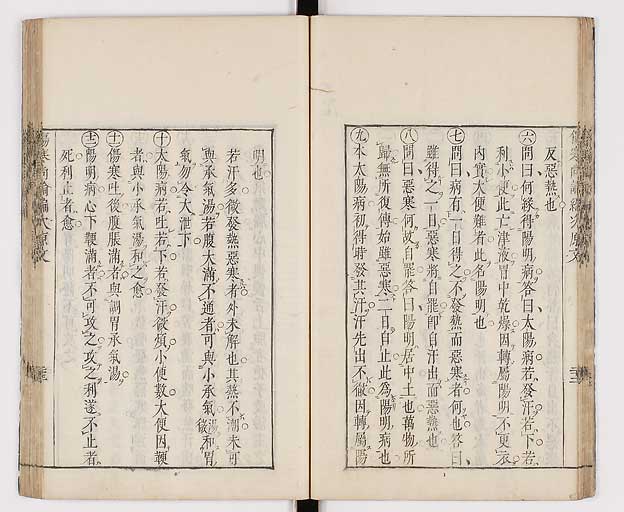 反惡熱也
六問曰何緣得陽明病答曰太陽病若發汗若下若
利小便此亡津液胃中乾燥因轉屬陽明不更衣
內實大便難者此名陽明也
七問曰病有一日得之不發熱而惡寒者何也答曰
雖得之一日惡寒將自罷即自汗出而惡熱也
八問曰惡寒何故自罷答曰陽明居中土也萬物所
歸無所復傳始雖惡寒二日自止此為陽明病也
九本太陽病初得時發其汗汗先出不徹因轉屬陽
明也
若汗多微發熱惡寒者外未解也其熱不潮未可
與承氣湯若腹大滿不通者可與小承氣湯微和胃
氣勿令大泄下
十太陽病若吐若下若發汗微煩小便數大便因鞕
者與小承氣湯和之愈
十一傷寒吐後腹脹滿者與調胃承氣湯
十二陽明病心下鞕滿者不可攻之攻之利遂不止者
死利止者愈